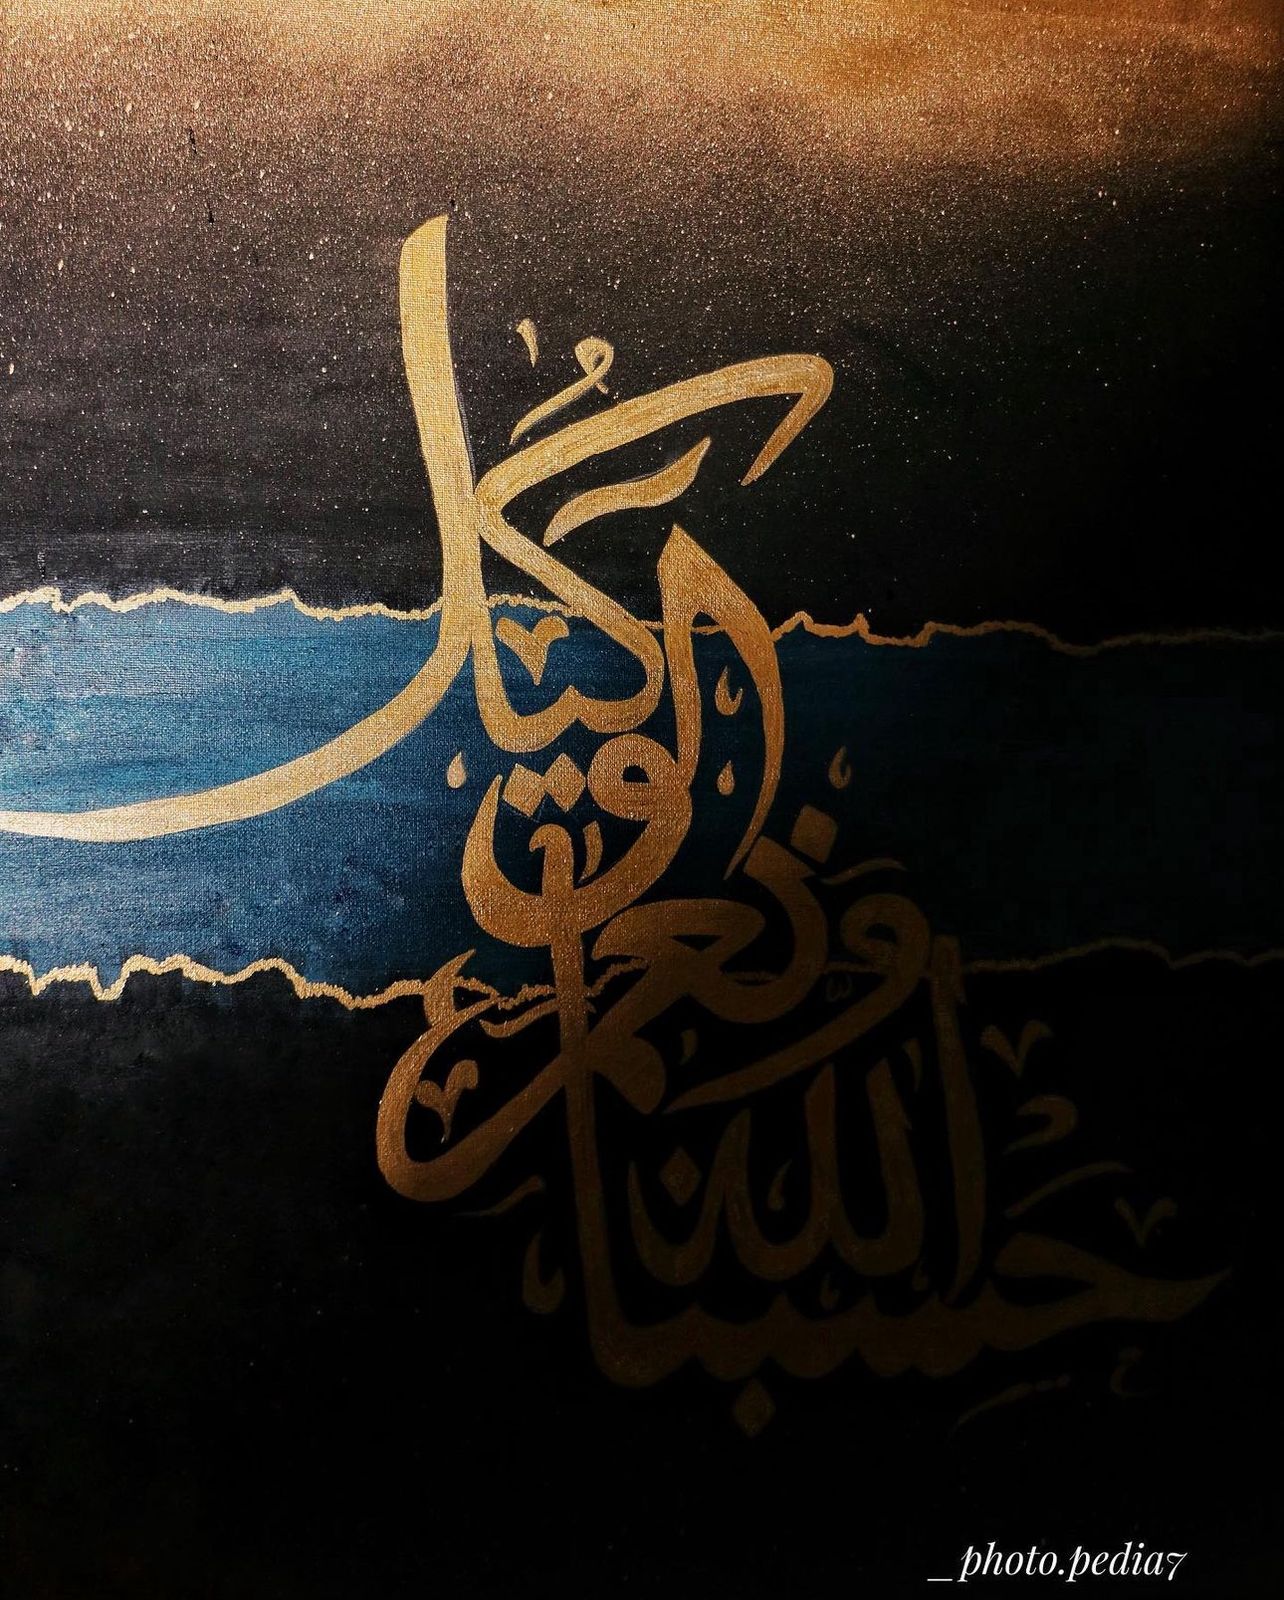 حسبنا الله ونعم الوكيل
_photo.pedia7